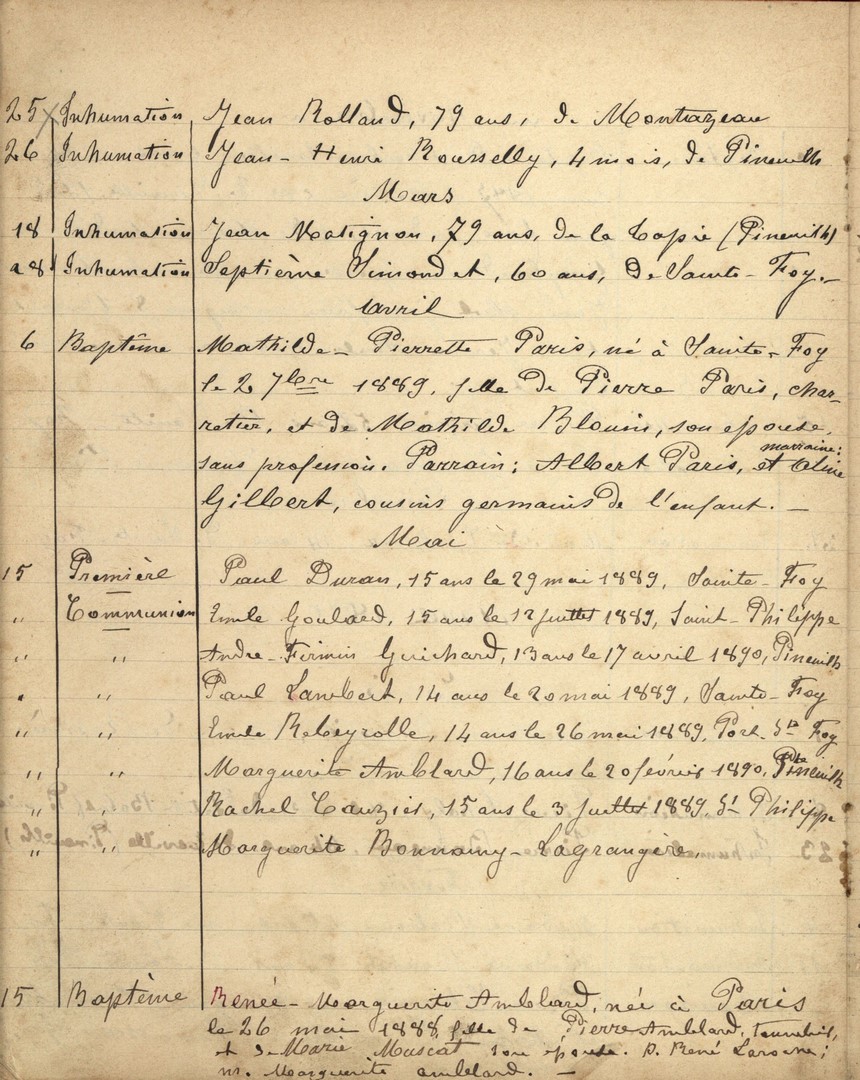 25 Inhumation Jean Rolland, 79 ans, de Montazeau
26 Inhumation Jean-Henri Rousselly, 4 mois, de Pineuilh
Mars
18 Inhumation Jean Matignon, 79 ans, de la Tapie (Pineuilh)
28 Inhumation Septième Simondet, 60 ans, de Sainte-Foy.-
Avril
6 Baptême Mathilde-Pierrette Paris, né à Sainte-Foy
le 2 7bre 1889, fille de Pierre Paris, char-
retier, et de Mathilde Blouin, son épouse,
sans profession. Parrain: Albert Paris, et marraine: Aline
Gilbert, cousins germains de l'enfant. —
Mai
15 Première Paul Duran, 15 ans le 29 mai 1889, Sainte-Foy
" Communion Emile Goulard, 15 ans le 12 juillet 1889, Saint-Philippe
" " André-Firmin Guichard, 13 ans le 17 avril 1890, Pineuilh
" " Paul Lambert, 14 ans le 20 mai 1889, Sainte-Foy
" " Emile Rebeyrolle, 14 ans le 26 mai 1889, Port-Ste Foy
" " Marguerite Amblard, 16 ans le 20 février 1890, Pineuilh
" " Rachel Tauzier, 15 ans le 3 juillet 1889, St Philippe
" " Marguerite Bonnamy-Lagrangère.
15 Baptême Renée-Marguerite Amblard, née à Paris
le 26 mai 1888, fille de Pierre Amblard, tonnelier,
et de Marie Muscat son épouse. P. René ;
m. Marguerite Amblard. —